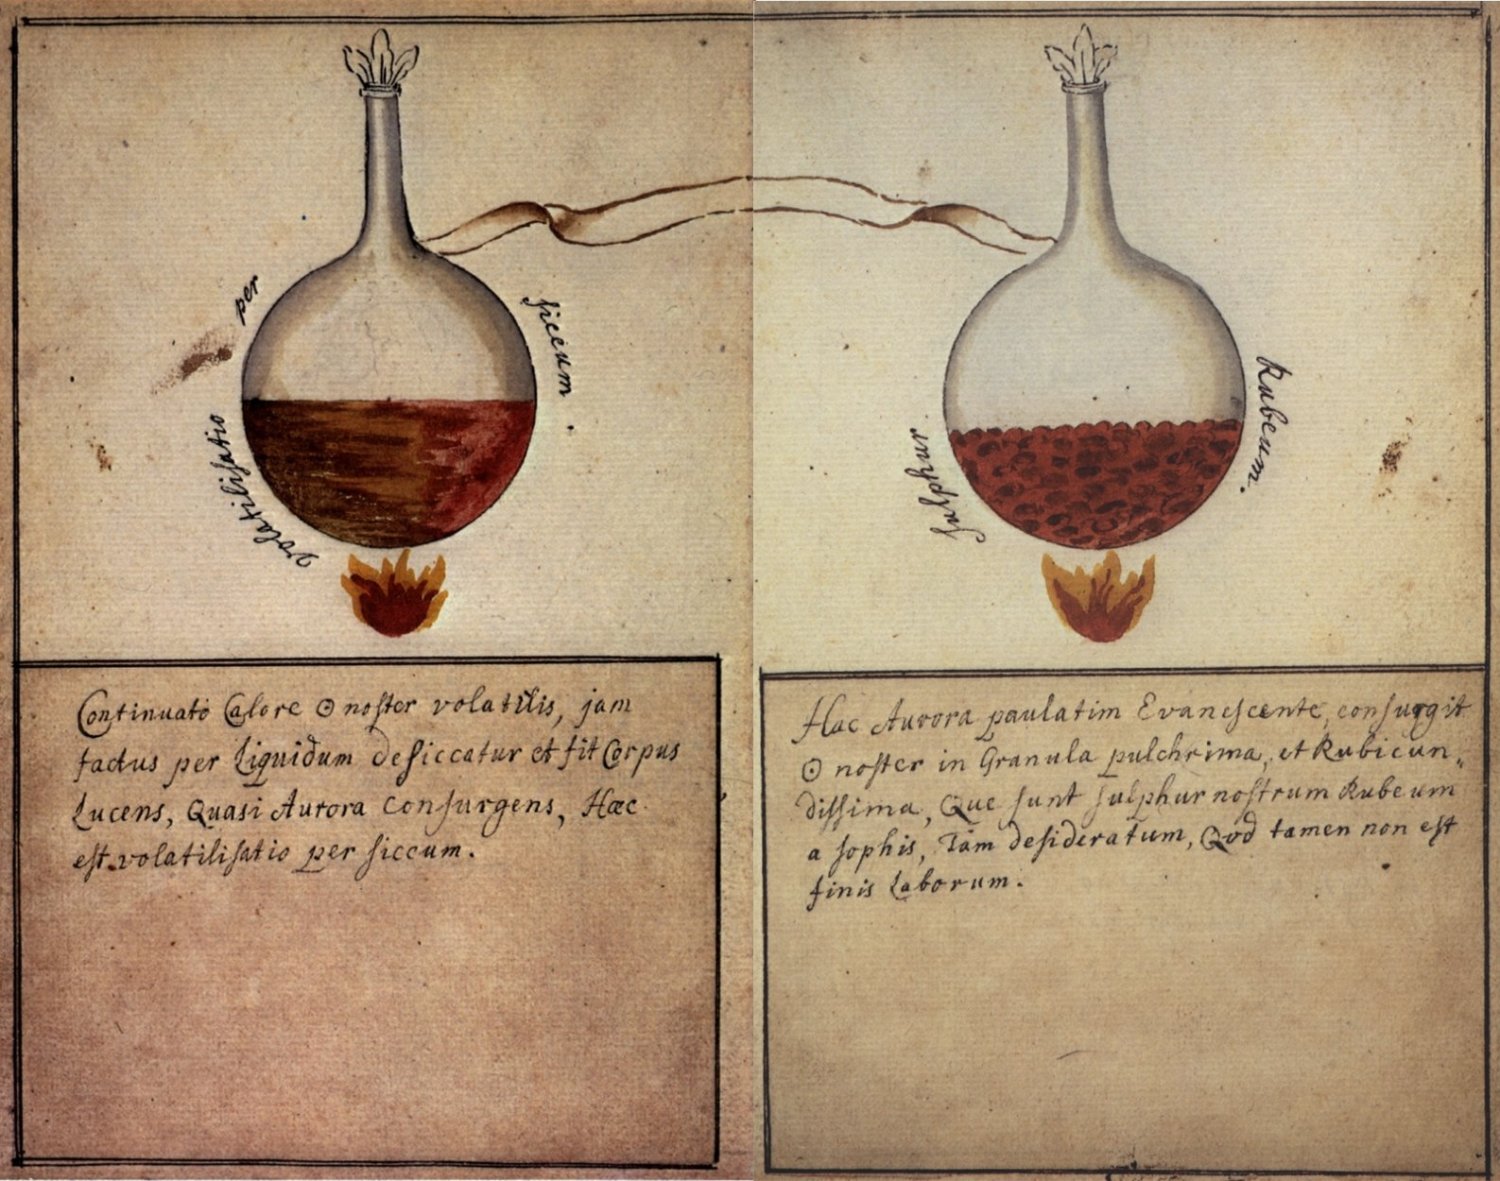 volatilisatio per siccum.
Continuato Calore ☉ noster volatilis, jam
factus per Liquidum desiccatur et fit Corpus
Lucens, Quasi Aurora consurgens, Hæc
est volatilisatio per siccum.
sulphur Rubeum.
Hac Aurora paulatim Evanescente, consurgit
☉ noster in Granula pulchrima, et Rubicun„
dissima, Que sunt sulphur nostrum Rubeum
a sophis, Tam desideratum, Qod tamen non est
finis Laborum.